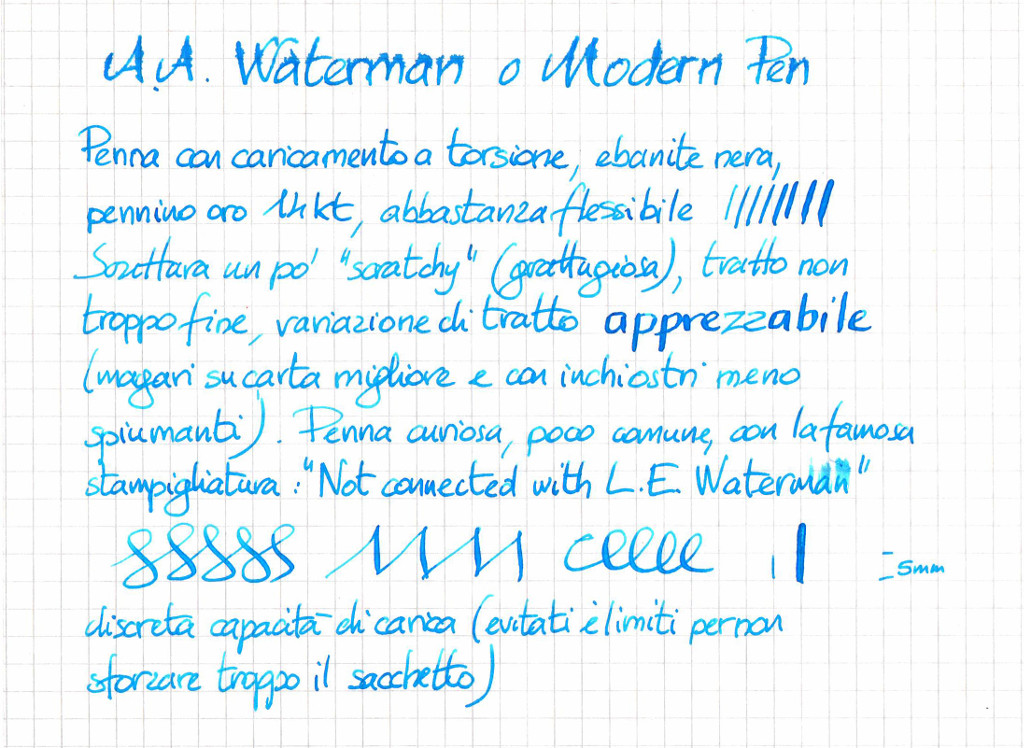 A.A. Waterman o Modern Pen
Penna con caricamento a torsione, ebanite nera,
pennino oro 14kt, abbastanza flessibile
Scrittura un po' "scratchy" (grattugiosa), tratto non
troppo fine, variazione di tratto apprezzabile
(magari su carta migliore e con inchiostri meno
spiumanti). Penna curiosa, poco comune, con la famosa
stampigliatura: "Not connected with L.E. Waterman"
5mm
discreta capacità di carica (evitati i limiti per non
sforzare troppo il sacchetto)